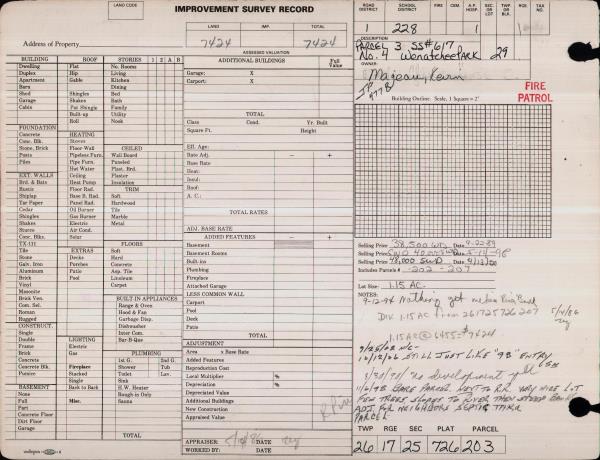 LAND CODE
IMPROVEMENT SURVEY RECORD
LAND IMP. TOTAL
7424 7424
Address of Property
ASSESSED VALUATION
BUILDING ROOF STORIES 1 2 A B
Dwelling Flat No. Rooms
Duplex Hip Living
Apartment Gable Kitchen
Barn Dining
Shed Shingles Bed
Garage Shakes Bath
Cabin Pat Shingle Family
Built-up Utility
Roll Nook
FOUNDATION
Concrete HEATING
Conc. Blk. Stoves
Stone, Brick Floor-Wall CEILED
Posts Pipeless Furn. Wall Board
Piles Pipe Furn. Paneled
Hot Water Plast. Brd.
EXT. WALLS Ceiling Plaster
Brd. & Bats Heat Pump Insulation
Rustic Floor Rad. TRIM
Shiplap Base B. Rad. Soft
Tar Paper Panel Rad. Hardwood
Cedar Oil Burner Tile
Shingles Gas Burner Marble
Shakes Electric Metal
Stucco Air Cond.
Conc. Blks. Solar
TX-111 FLOORS
Tile EXTRAS Soft
Stone Decks Hard
Galv. Iron Porches Concrete
Aluminum Patio Asp. Tile
Stick Pool Linoleum
Vinyl Carpet
Masonite
Brick Ven. BUILT-IN APPLIANCES
Com. Sel. Range & Oven
Roman Hood & Fan
Rugged Garbage Disp.
CONSTRUCT. Dishwasher
Single Inter Com.
Dbl. LIGHTING Bar-B-Que
Frame Electric
Brick Gas PLUMBING
Concrete 1st G. 2nd G.
Concrete Blk. Fireplace Shower Tub
Posts Stacked Toilet
Single Sink
BASEMENT Back to Back H.W. Heater
None Rough-in Only
Full Misc. Sauna
Part
Concrete Floor
Dirt Floor
Outside Ent.
Garage
TOTAL
ADDITIONAL BUILDINGS Full Value
Garage: X
Carport: X
TOTAL
Class Cond. Yr. Built
Square Ft. Height
Eff. Age:
Rate Adj. − +
Base Rate:
Heat:
Insul:
Roof:
A. C.:
TOTAL RATES
ADJ. BASE RATE
ADDED FEATURES − +
Basement
Basement Rooms
Built-ins
Plumbing
Fireplace
Attached Garage
LESS COMMON WALL
Carport
Patio
Deck
Pool
TOTAL
ADJUSTMENT
Area x Base Rate
Added Features
Reproduction Cost
Local Multiplier %
Depreciation %
Depreciated Value
Additional Buildings
New Construction
Appraised Value
APPRAISER: DATE
WORKED BY: DATE
ROAD DISTRICT SCHOOL DISTRICT FIRE CEM. A.P. HOSP. SEC. OR LOT TWP. OR BLK. RGE. TAX NO.
1 228 1
DESCRIPTION
PARCEL 3 SS#617
No. Wenatchee Park 29
OWNER
FIRE PATROL
Building Outline: Scale, 1 Square = 2'
Selling Price 38,500 WD Date 9-22-89
Selling Price SWD 40,000 Date 5-14-98
Selling Price 48,000 SWD Date
Includes Parcels # -202 - 207
Lot Size: 1.15 AC
NOTES:
9-12-94 Nothing got
DIV 1.15 AC from 261725726207 5/4/86
1.15AC @ 6455 = 7424
9/25/02 N/C
10/12/06 STILL JUST LIKE "98" ENTRY
no development
11/6/98 BARE PARCEL NEXT TO R.R. HWY WIRE LOT
FEW TREES SLOPES TO RIVER THEN STEEP BANK
ADJ FOR NEIGHBORS SEPTIC THRU
PARCEL
TWP RGE SEC PLAT PARCEL
26 17 25 726 203